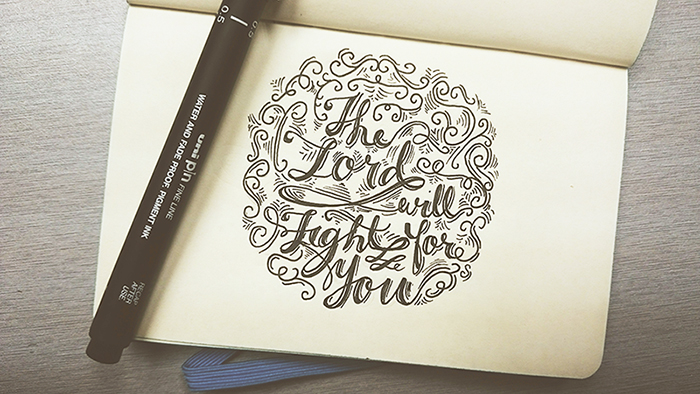 The
Lord
will
Fight for
You
0.5
0.5
WATER AND FADE PROOF, PIGMENT INK
uni pin FINE LINE
RECAP
AFTER
USE